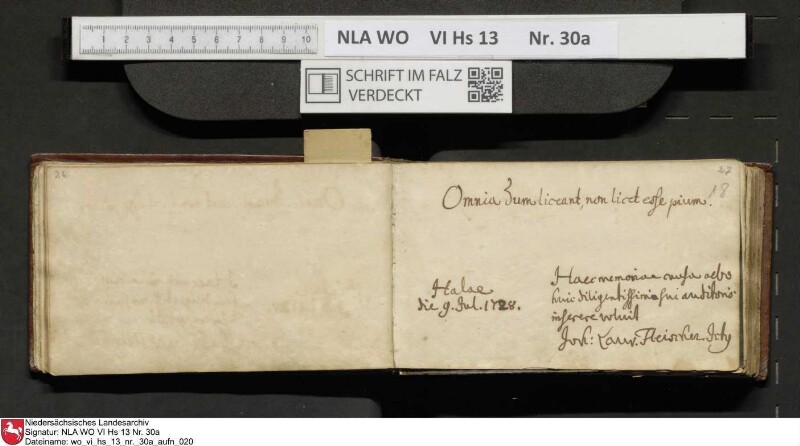 NLA WO VI Hs 13 Nr. 30a
SCHRIFT IM FALZ
VERDECKT
26
27
18
Omnia dum liceant, non licet esse pium.
Halae
die 9. Jul. 1728.
Haec memoriae causa
huic diligentissimi sui auditoris
inserere voluit
Joh: Laur. Fleischer. Dr
Niedersächsisches Landesarchiv
Signatur: NLA WO VI Hs 13 Nr. 30a
Dateiname: wo_vi_hs_13_nr._30a_aufn_020